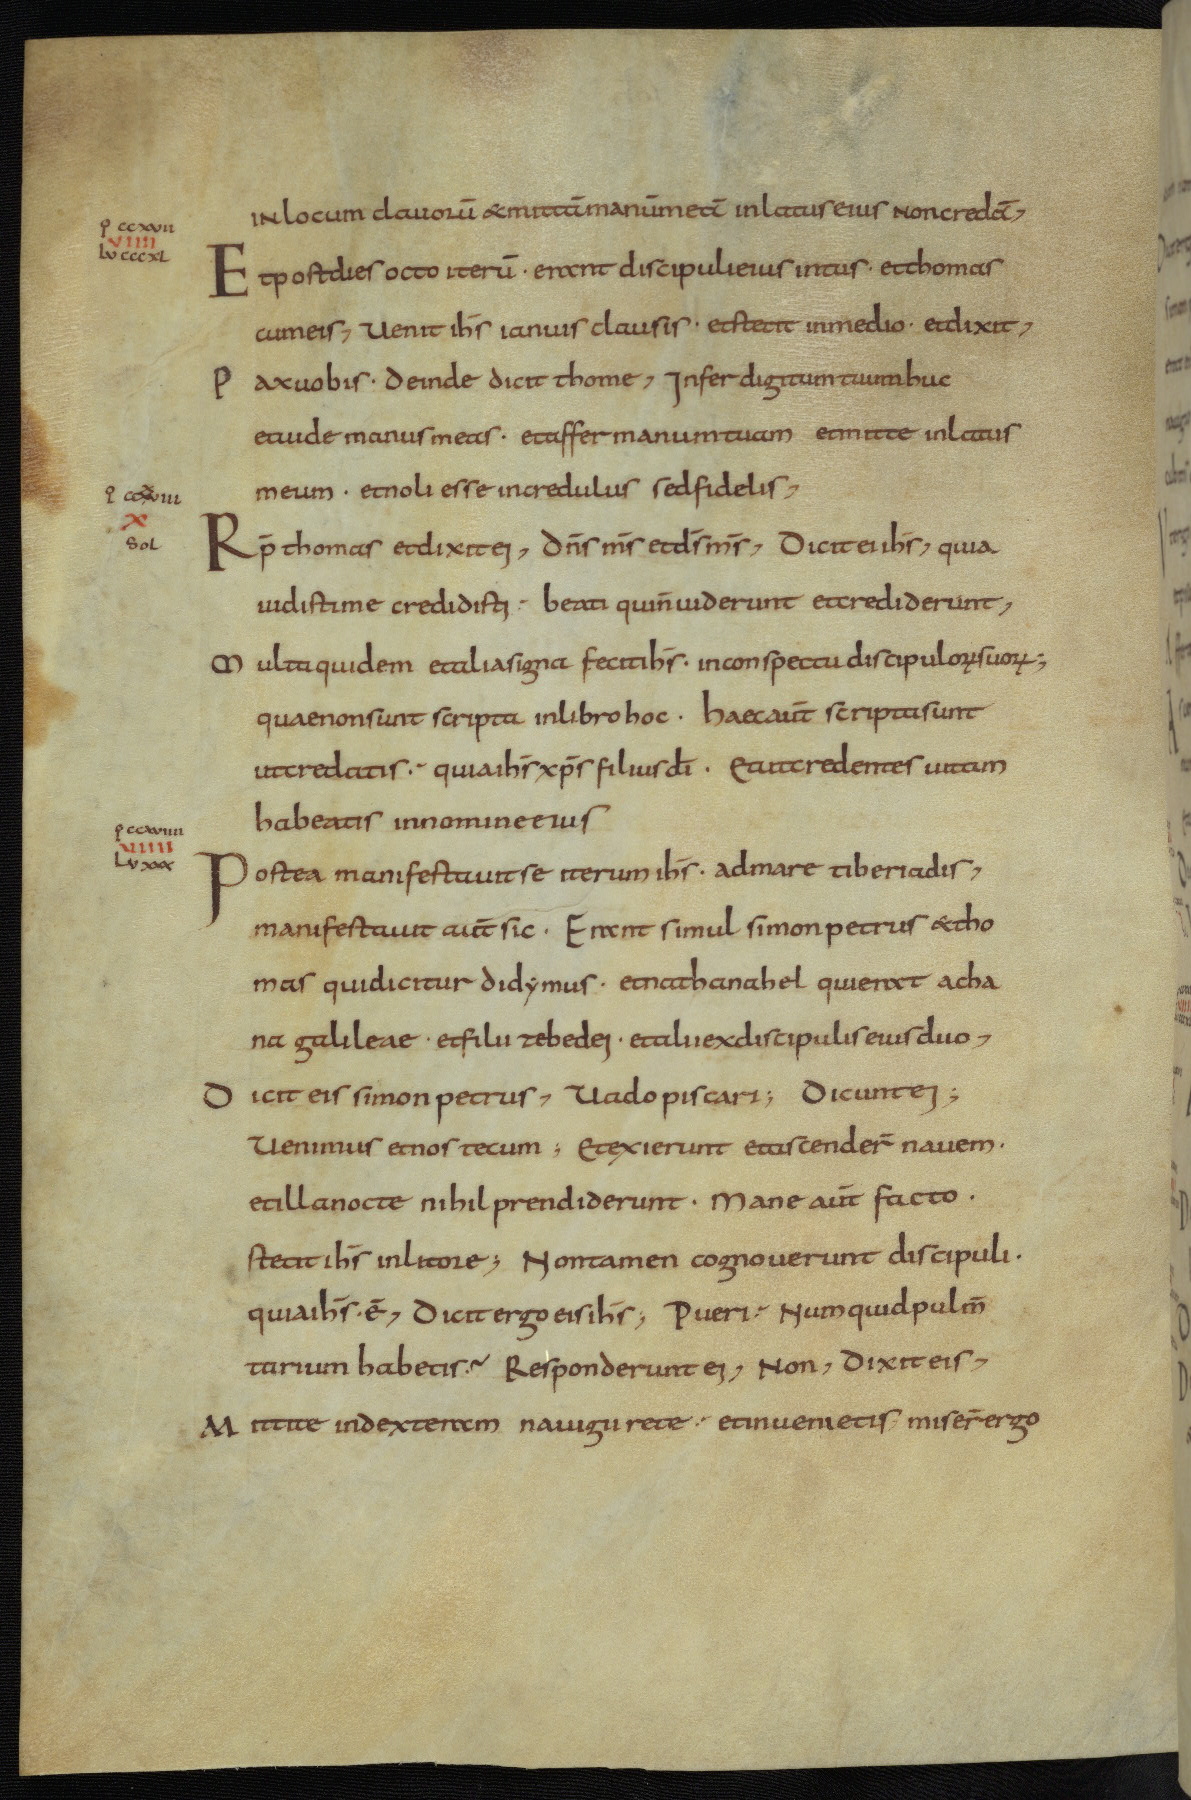 ϼ ccxvii
VIIII
Lv cccxl
in locum clavorū & mittā manū meā in latus eius non credā,
Et post dies octo iterū · erant discipuli eius intus · et thomas
cum eis, Venit ihs̄ ianuis clausis · et stetit in medio · et dixit,
Pax vobis · deinde dicit thome, Infer digitum tuum huc
et vide manus meas · et affer manum tuam et mitte in latus
ϼ ccxviii
X
Sol
meum · et noli esse incredulus sed fidelis,
Rp̄ thomas et dixit ei, Dn̄s ms̄ et ds̄ ms̄, Dicit ei ihs̄, quia
vidisti me credidisti · beati qui n̄ viderunt et crediderunt,
Multa quidem et alia signa fecit ihs̄ · in conspectu discipuloꝝ suoꝝ;
quae non sunt scripta in libro hoc · haec aut̄ scripta sunt
ut credatis · quia ihs̄ xps̄ filius dī · Et ut credentes vitam
habeatis in nomine eius
ϼ ccxviiii
VIIIII
Lv xxx
Postea manifestavit se iterum ihs̄ · ad mare tiberiadis,
manifestavit aut̄ sic · Erant simul simon petrus & tho
mas qui dicitur didẏmus · et nathanahel qui erat a cha
na galileae · et filii zebedei · et alii ex discipulis eius duo,
Dicit eis simon petrus, Vado piscari; Dicunt ei;
Venimus et nos tecum; Et exierunt et ascender̄ navem ·
et illa nocte nihil prendiderunt · Mane aut̄ facto ·
stetit ihs̄ in litore; Non tamen cognoverunt discipuli ·
quia ihs̄ · ē, Dicit ergo eis ihs̄; Pueri · Numquid pulm̄
tarium habetis · Responderunt ei, Non, Dixit eis,
Mittite in dexteram navigii rete · et invenietis, miser̄ ergo